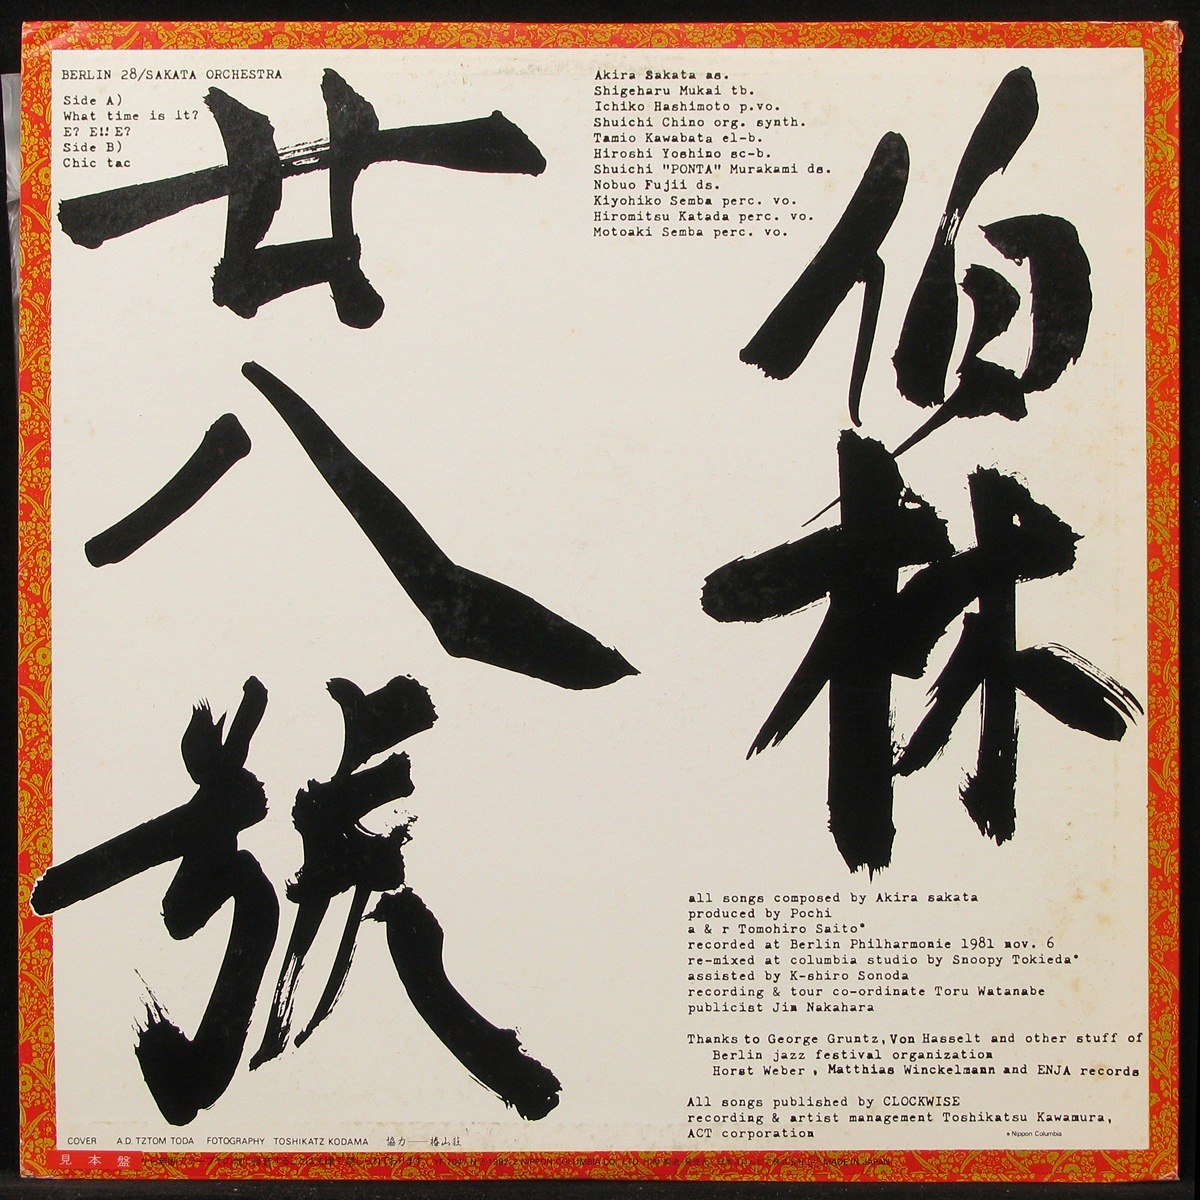 BERLIN 28/SAKATA ORCHESTRA
Side A)
What time is it?
E? E!! E?
Side B)
Chic tac
Akira Sakata as.
Shigeharu Mukai tb.
Ichiko Hashimoto p.vo.
Shuichi Chino org. synth.
Tamio Kawabata el-b.
Hiroshi Yoshino sc-b.
Shuichi "PONTA" Murakami ds.
Nobuo Fujii ds.
Kiyohiko Semba perc. vo.
Hiromitsu Katada perc. vo.
Motoaki Semba perc. vo.
伯林
廿八號
all songs composed by Akira sakata
produced by Pochi
a & r Tomohiro Saito*
recorded at Berlin Philharmonie 1981 nov. 6
re-mixed at columbia studio by Snoopy Tokieda*
assisted by K-shiro Sonoda
recording & tour co-ordinate Toru Watanabe
publicist Jim Nakahara
Thanks to George Gruntz, Von Hasselt and other stuff of
Berlin jazz festival organization
Horst Weber, Matthias Winckelmann and ENJA records
All songs published by CLOCKWISE
recording & artist management Toshikatsu Kawamura,
ACT corporation
* Nippon Columbia
COVER A.D. TZTOM TODA FOTOGRAPHY TOSHIKATZ KODAMA 協力——椿山荘
見本盤
NIPPON COLUMBIA CO., LTD. MADE IN JAPAN